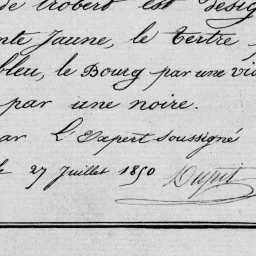 de trobert est désig
nte Jaune, le Tertre
bleu, le Bourg par une vi
par une noire.
ar L'Expert soussigné
27 Juillet 1850
Dupuis